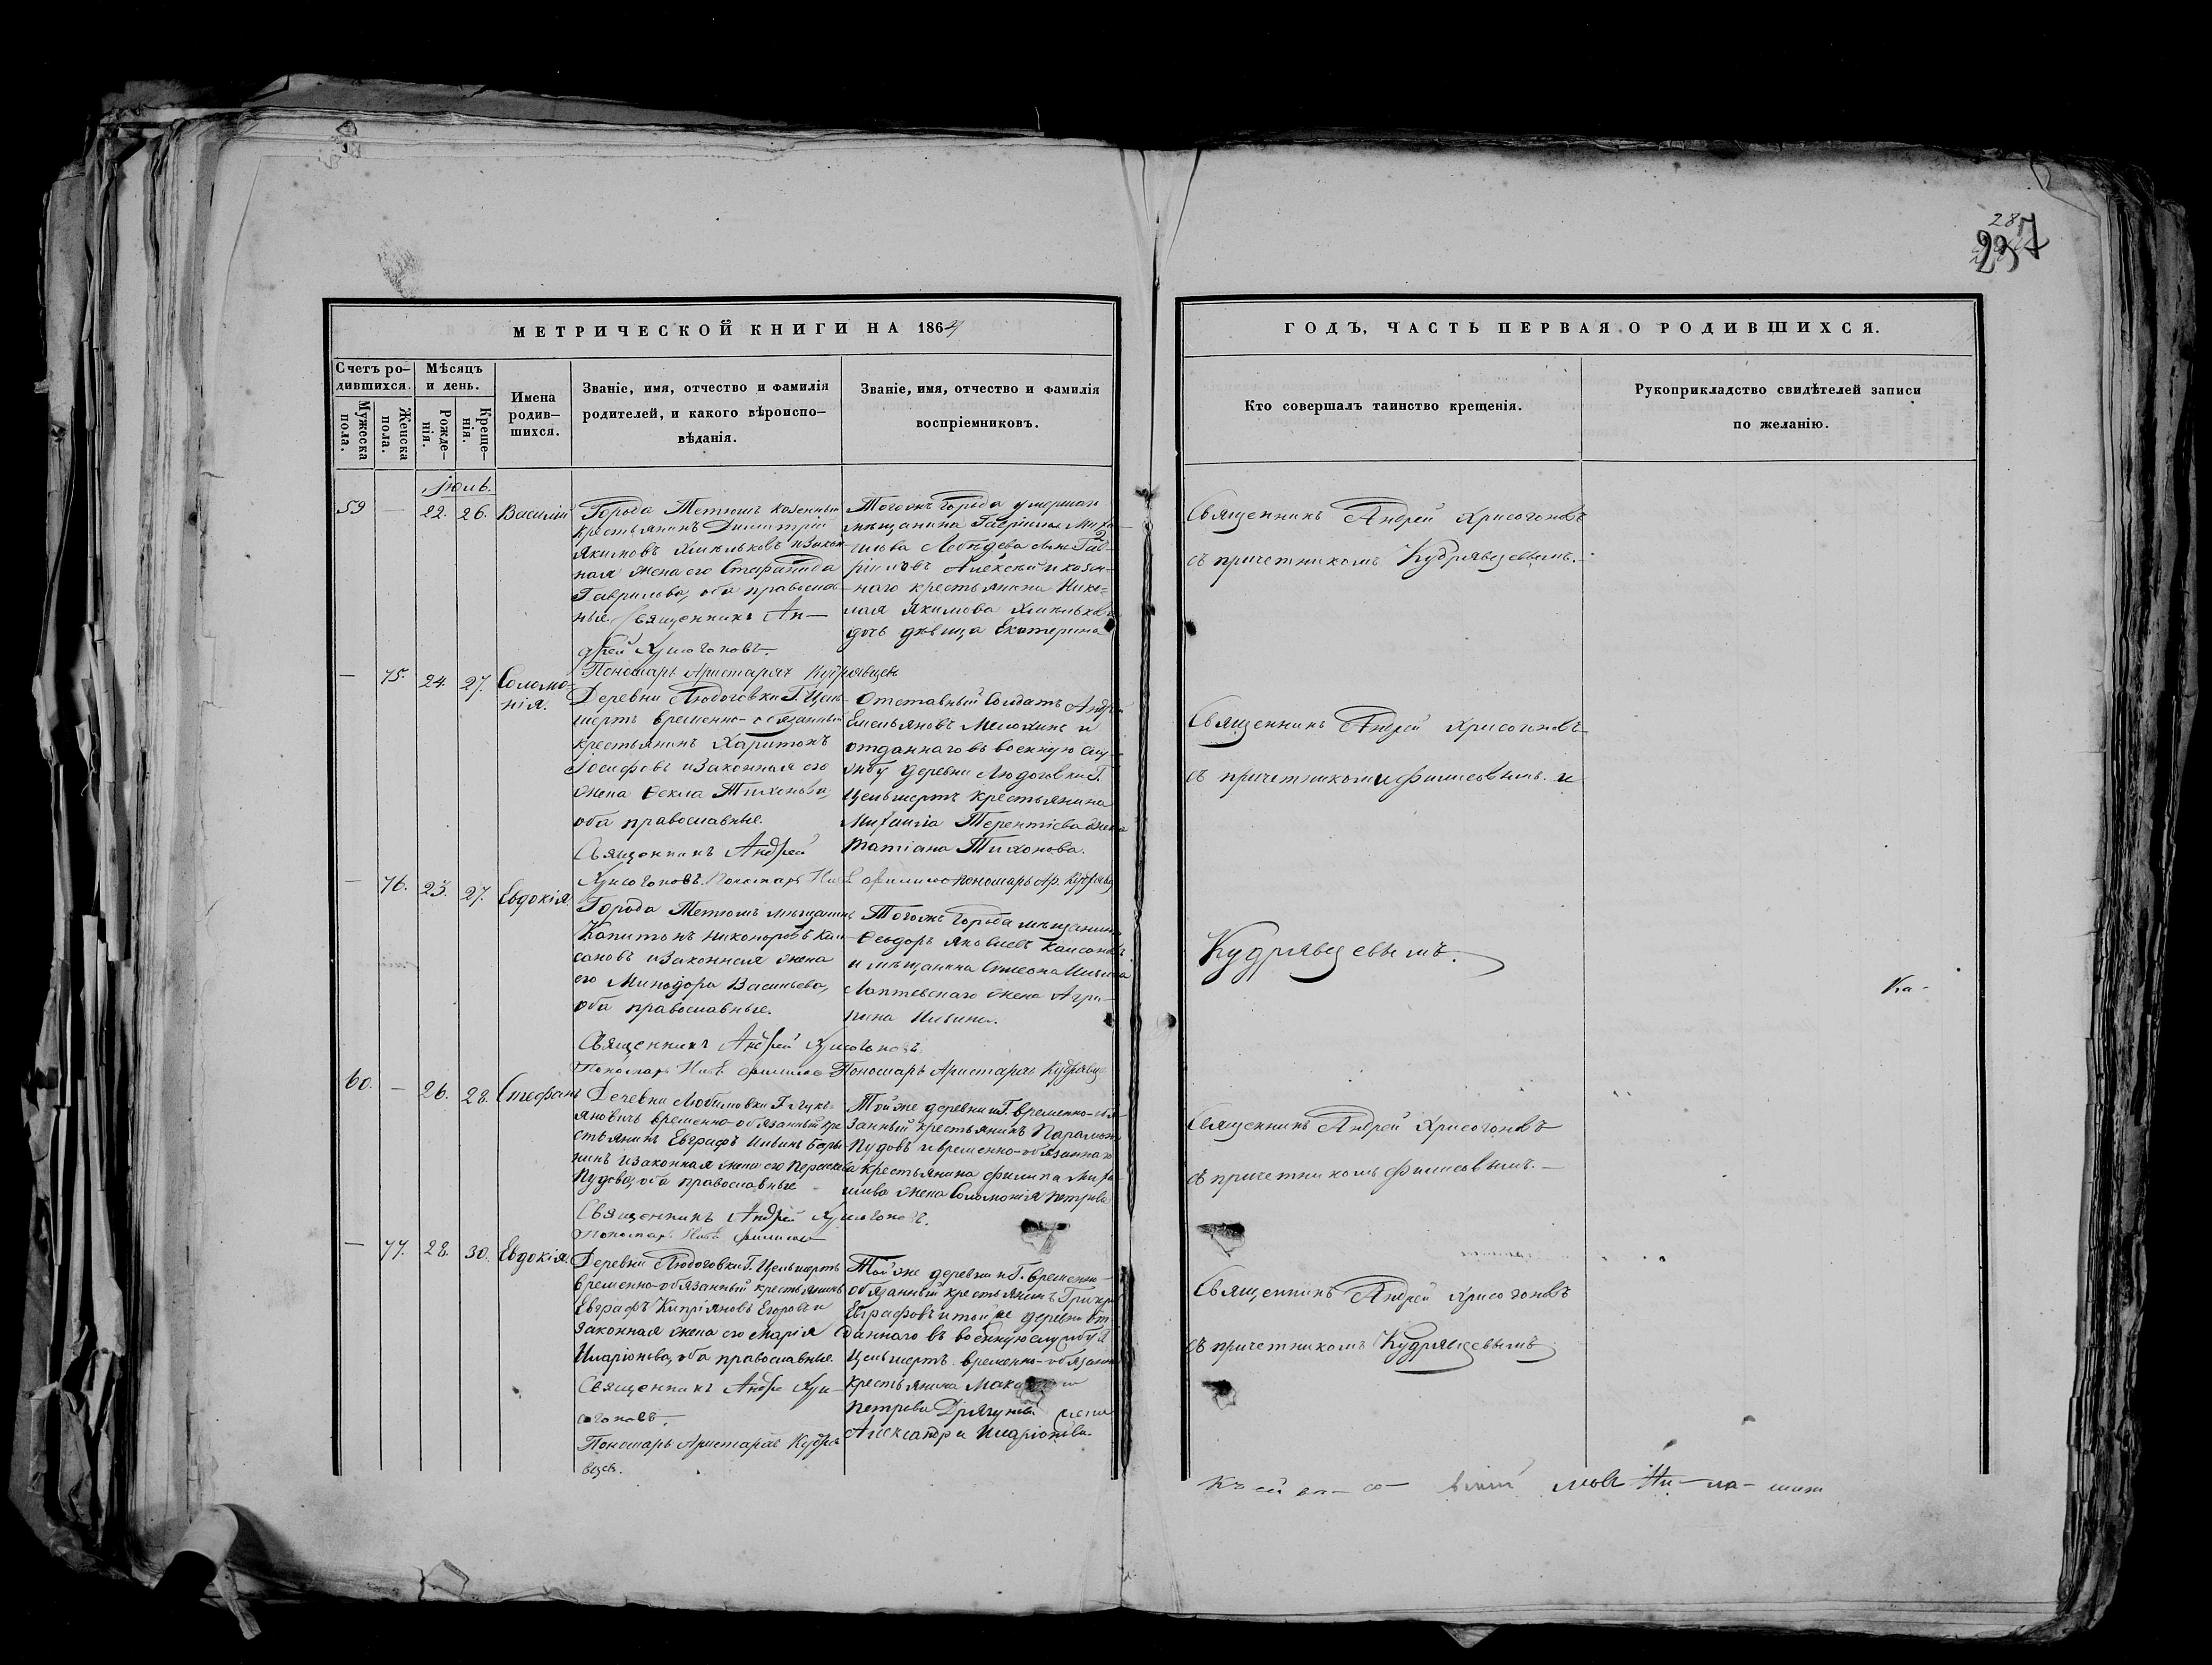 287
237
МЕТРИЧЕСКОЙ КНИГИ НА 1864
ГОДЪ, ЧАСТЬ ПЕРВАЯ О РОДИВШИХСЯ.
Счетъ ро-
дившихся.
Мужеска
пола.
Женска
пола.
Мѣсяцъ
и день.
Рожде-
нія.
Креще-
нія.
Имена
родив-
шихся.
Званіе, имя, отчество и фамилія
родителей, и какого вѣроиспо-
вѣданія.
Званіе, имя, отчество и фамилія
воспріемниковъ.
Кто совершалъ таинство крещенія.
Рукоприкладство свидѣтелей записи
по желанію.
Іюль.
59 — 22. 26. Василій
Города Тетюшъ казенный
крестьянинъ Димитрій
Якимовъ Хмѣльковъ и закон-
ная жена его Стефанида
Гаврилова, оба православ-
ные. Священникъ Ан-
дрей Хрисогоновъ.
Пономарь Аристархъ Кудрявцевъ
Тогожъ города умершаго
мѣщанина Гавріила
Лебедева сынъ Гав-
ріиловъ Алексѣй и казен-
наго крестьянина Нико-
лая Якимова Хмѣлькова
дочь дѣвица Екатерина
Священникъ Андрей Хрисогоновъ
съ причетникомъ Кудрявцевымъ.
— 75. 24. 27. Соломо-
нія.
Деревни Людоговки Г. Цель-
мертъ временно-обязанный
крестьянинъ Харитонъ
Іосифовъ и законная его
жена Ѳекла Тихонова,
оба православные.
Священникъ Андрей
Хрисогоновъ. Пономарь Пономарь Ар. Кудрявц
Отставный солдатъ Андре
Емельяновъ и
отданнаго въ военную слу-
жбу деревни Людоговки Г.
Цельмертъ крестьянина
Михаила Терентіева жена
Татіана Тихонова.
Священникъ Андрей Хрисогоновъ
съ причетниками Филисовымъ и
Кудрявцевымъ.
— 76. 25. 27. Евдокія.
Города Тетюшъ мѣщанинъ
Капитонъ Никоноровъ Кал-
сановъ и законная жена
его Минодора Васильева,
оба православные.
Священникъ Андрей Хрисогоновъ
Пономарь Пономарь Аристархъ Кудрявце
Тогожъ города мѣщанинъ
Ѳеодоръ Яковлевъ
и мѣщанина Симеона Ильина
Лаптевскаго жена Агри-
пина Ильина.
Ка-
60. — 26. 28. Стефанъ
Деревни Любимовки Г. Лукь-
яновичъ временно-обязанный кре
стьянинъ Евграфъ Ильинъ
и законная жена его Параскева
Пудова, оба православные
Священникъ Андрей Хрисогоновъ.
Пономарь
Той же деревни и Г. временно-обя-
занный крестьянинъ Парамонъ
Пудовъ и временно-обязаннаго
крестьянина Филипа
жена Соломонія Петрова
Священникъ Андрей Хрисогоновъ
съ причетникомъ Филисовымъ.
— 77. 28. 30. Евдокія.
Деревни Людоговки Г. Цельмертъ
временно-обязанный крестьянинъ
Евграфъ Кипріяновъ Егоровъ и
законная жена его Марія
Иларіонова, оба православные.
Священникъ Андре Хри-
согоновъ.
Пономарь Аристархъ Кудря
вцевъ.
Той же деревни и Г. временно-
обязанный крестьянинъ Григорій
Евграфовъ и той же деревни от
даннаго въ военную службу Г.
Цельмертъ временно-обязанн
крестьянина
Петрова жена
Александра Иларіонова
Священникъ Андрей Хрисогоновъ
съ причетникомъ Кудрявцевымъ